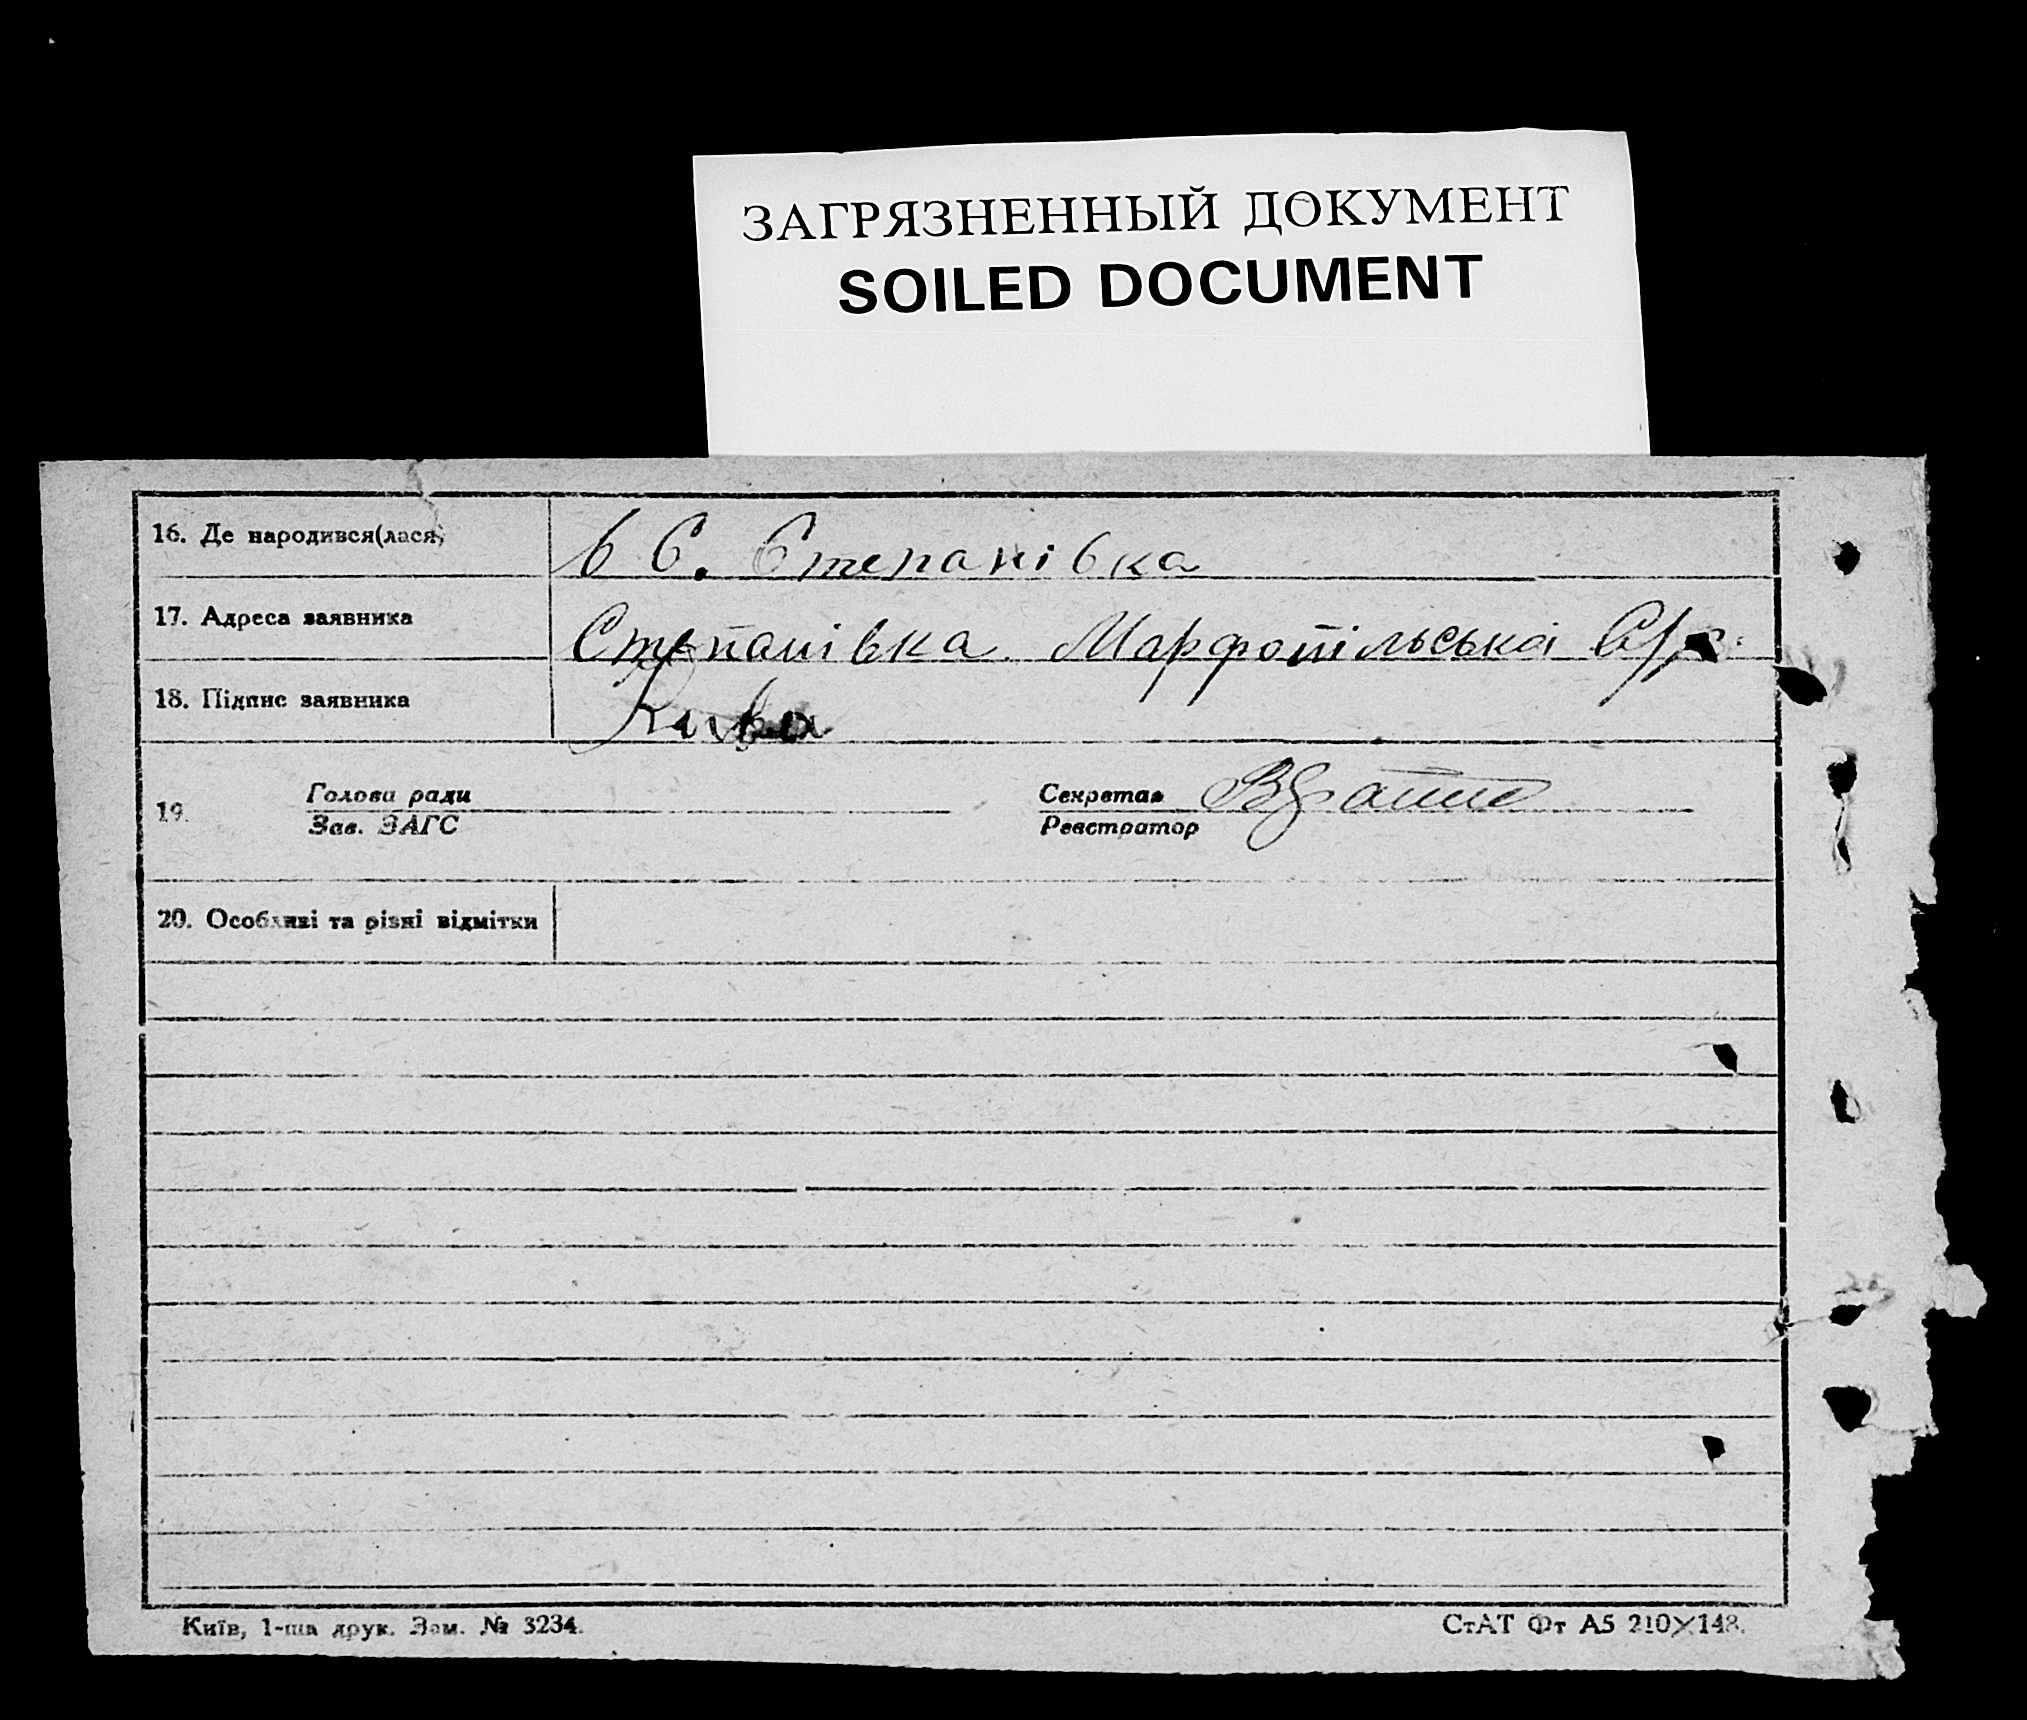 ЗАГРЯЗНЕННЫЙ ДОКУМЕНТ
SOILED DOCUMENT
16. Де народився(лася)
в С. Степанівка
17. Адреса заявника
Степанівка. Марфопільської С/р.
18. Підпис заявника
19.
Голова ради
Зав. ЗАГС
Секретар
Реєстратор
20. Особливі та різні відмітки
Київ, 1-ша друк. Зам. № 3234.
СтАТ Фт А5 210×148.